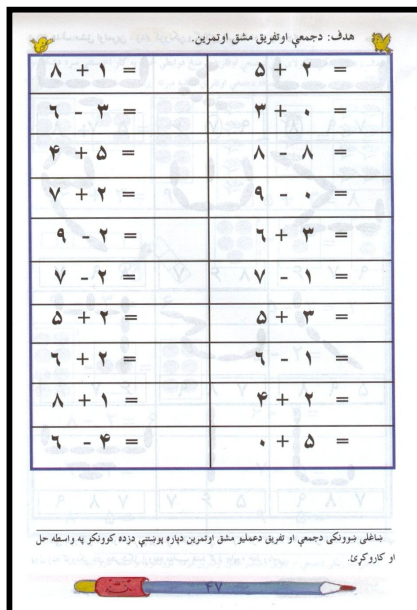 هدف: دجمعې اوتفریق مشق اوتمرین.
۸ + ۱ = ۵ + ۲ =
۶ - ۳ = ۳ + ۰ =
۴ + ۵ = ۸ - ۸ =
۷ + ۲ = ۹ - ۰ =
۹ - ۲ = ۶ + ۳ =
۷ - ۲ = ۷ - ۱ =
۵ + ۲ = ۵ + ۳ =
۶ + ۲ = ۶ - ۱ =
۸ + ۱ = ۴ + ۲ =
۶ - ۴ = ۵ + ۰ =
ښاغلی ښوونکی دجمعې او تفریق دعملیو مشق اوتمرین دپاره پوښتنې دزده کوونکو په واسطه حل
او کاروکړئ.
۴۷